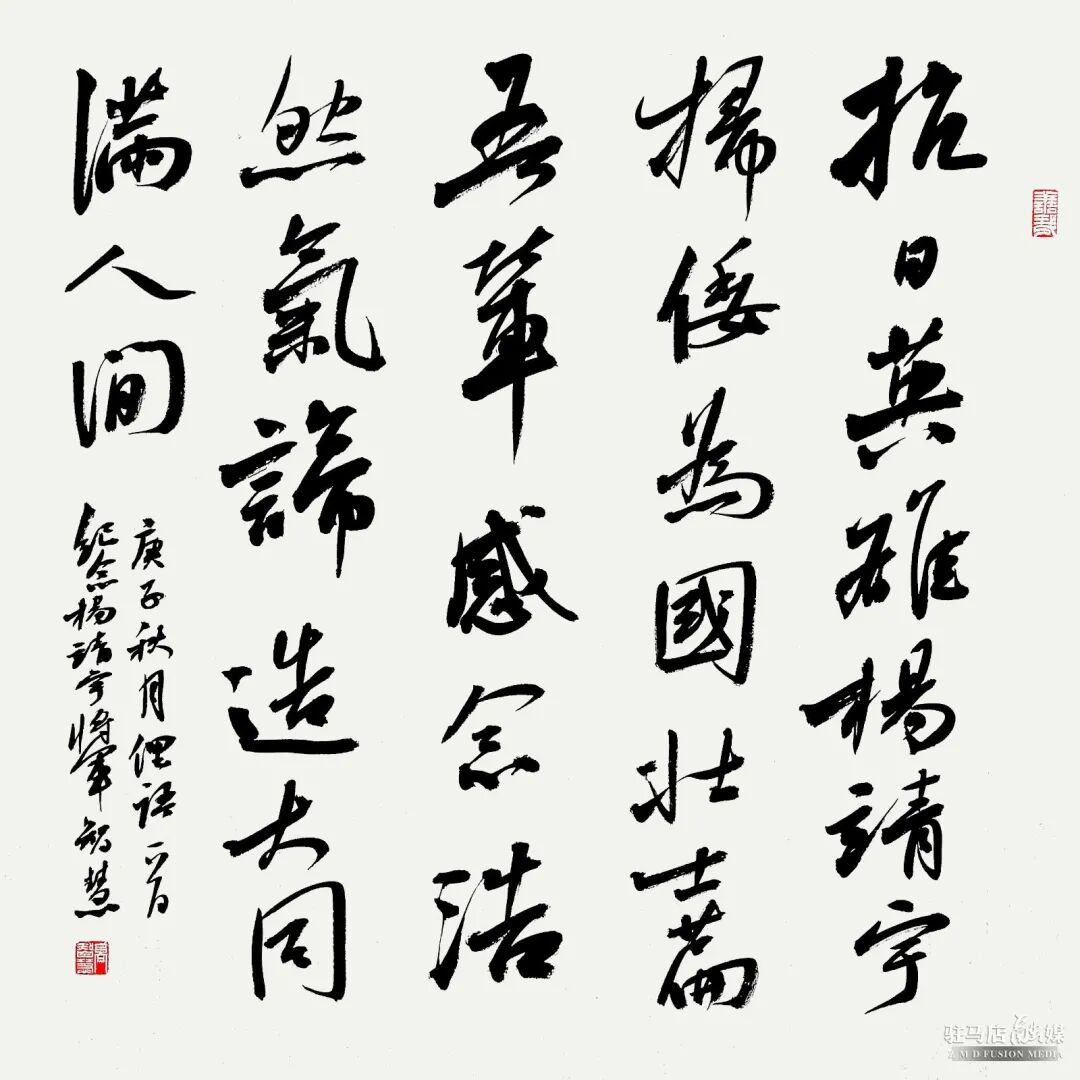 抗日英雄楊靖宇
掃倭為國壯士篇
吾輩感念浩
然氣諦造大同
滿人間
庚子秋月俚語一首
紀念楊靖宇將軍智慧
驻马店融媒
Z M D FUSION MEDIA